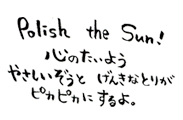 Polish the Sun!
心のたいよう
やさしいぞうと げんきなとりが
ピカピカにするよ。